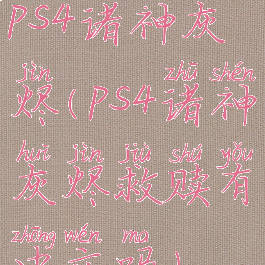 PS4诸神灰
jìn zhū shén
烬(PS4诸神
huī jìn jiù shú yǒu
灰烬救赎有
zhōng wén ma